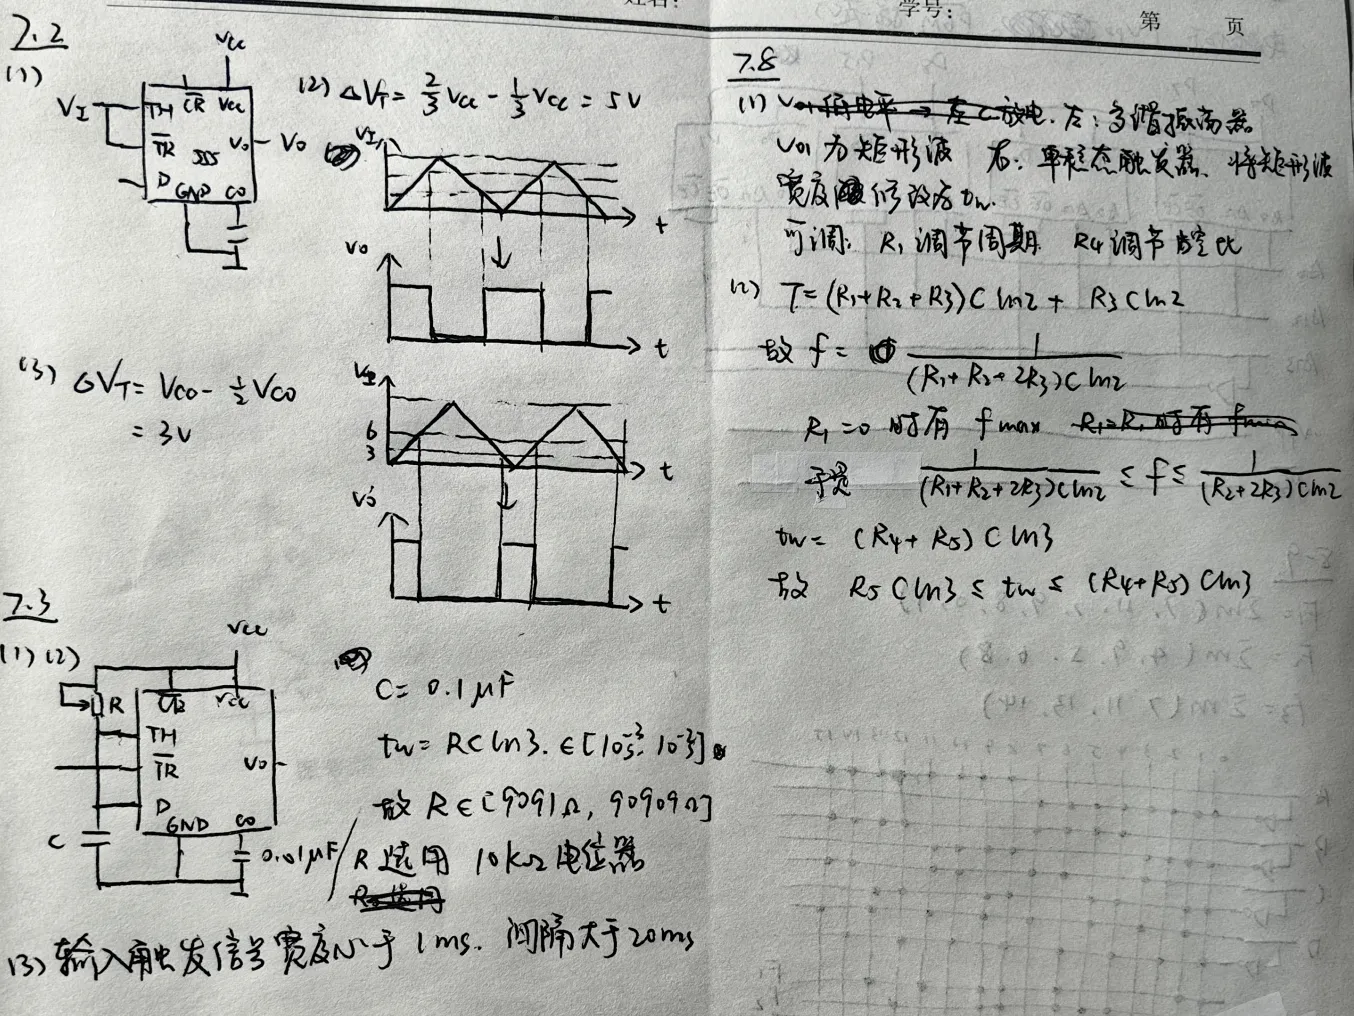 学号:
第 页
7.2
(1)
Vcc
VI
TH
CR
Vcc
TR
555
Vo
Vo
D
GND
CO
(2) ΔVT = 2/3 Vcc - 1/3 Vcc = 5V
VI
t
Vo
t
(3) ΔVT = Vco - 1/2 Vco
= 3V
VI
6
3
t
Vo'
t
7.3
(1) (2)
Vcc
R
CR
Vcc
TH
TR
Vo
D
GND
CO
C
0.01μF
C = 0.1μF
tw = RC ln3. ∈ [
故 R ∈ [9091Ω, 90909Ω]
R 选用 10kΩ 电位器
(3) 输入触发信号宽度小于 1ms. 间隔大于 20ms
7.8
(1) 左: 多谐振荡器
Vo1 为矩形波 右: 单稳态触发器. 将矩形波
宽度修改为 tw.
可调: R1 调节周期. R4 调节占空比
(2) T = (R1+R2+R3)C ln2 + R3 C ln2
故 f = 1/((R1+R2+2R3)C ln2)
R1 = 0 时有 fmax
于是 1/((R1+R2+2R3)C ln2) ≤ f ≤ 1/((R2+2R3)C ln2)
tw = (R4+R5) C ln3
故 R5 C ln3 ≤ tw ≤ (R4+R5) C ln3